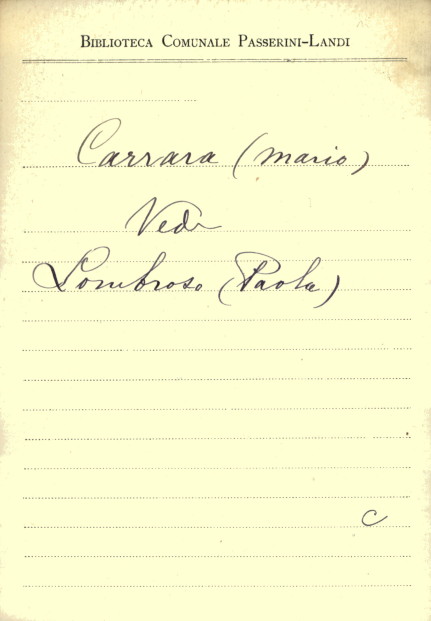 BIBLIOTECA COMUNALE PASSERINI-LANDI
Carrara (Mario)
Vedi
Lombroso (Paola)
C